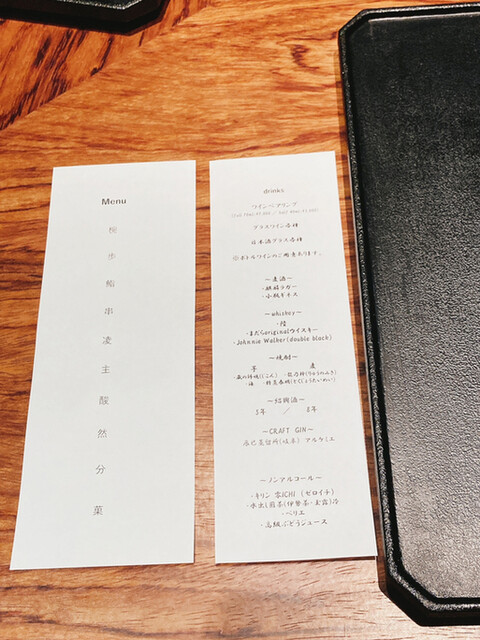 Menu
椀
歩
鮨
串
凌
主
酸
然
分
菓
drinks
ワインペアリング
グラスワイン各種
日本酒グラス各種
※ボトルワインのご用意あります。
〜麦酒〜
・麒麟ラガー
・小瓶ギネス
〜whiskey〜
・陸
・まだらoriginalウイスキー
・Johnnie Walker(double black)
〜焼酎〜
芋 麦
〜紹興酒〜
5年 / 8年
〜CRAFT GIN〜
辰巳蒸留所(岐阜) アルケミエ
〜ノンアルコール〜
・キリン 零ICHI (ゼロイチ)
・水出し煎茶(伊勢茶・玉露)冷
・ペリエ
・高級ぶどうジュース